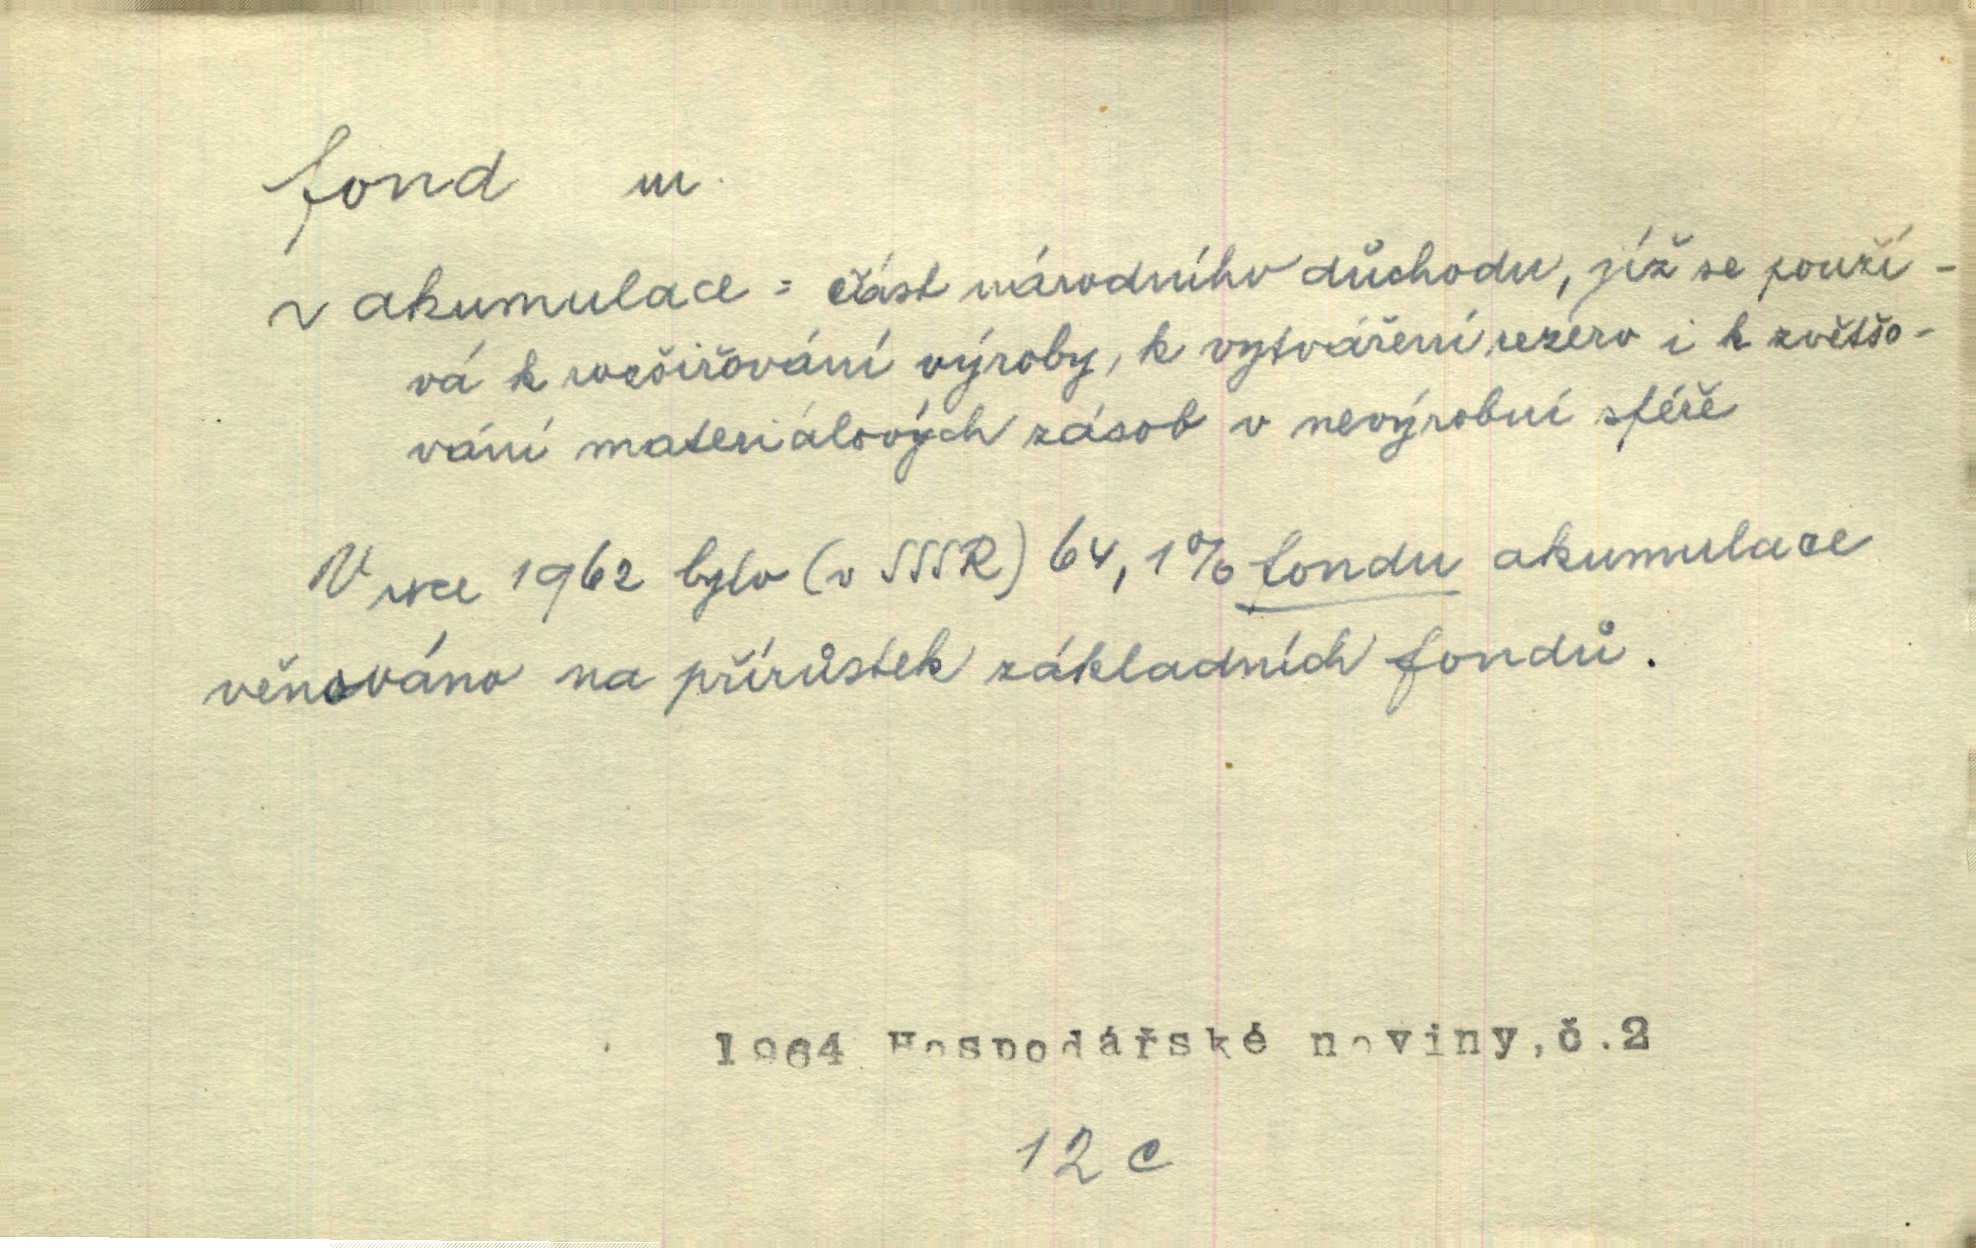 fond m.
~ akumulace = část národního důchodu, jíž se použí-
vá k rozšiřování výroby, k vytváření rezerv i k zvětšo-
vání materiálových zásob v nevýrobní sféře
V roce 1962 bylo (v SSSR) 64,1% fondu akumulace
věnováno na přírůstek základních fondů.
1964 Hospodářské noviny,č.2
12 c